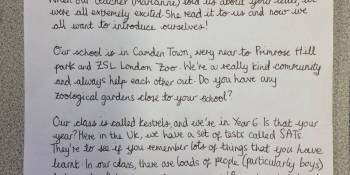 When our teacher (Marianne) told us about your letter, we
were all extremely excited. She read it to us and now we
all want to introduce ourselves!
Our school is in Camden Town, very near to Primrose Hill
park and ZSL London Zoo. We're a really kind community
and always help each other out. Do you have any
zoological gardens close to your school?
Our class is called Kestrels, and we're in Year 6. Is that your
year? Here in the UK, we have a set of tests called SATs.
They're to see if you remember lots of things that you have
learnt. In our class, there are loads of people (particularly boys)